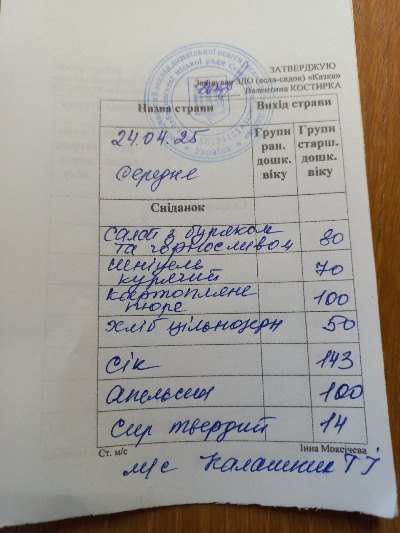 ЗАТВЕРДЖУЮ
Завідувач ЗДО (ясла-садок) «Казка»
Валентина КОСТИРКА
Назва страви Вихід страви
24.04.25 Групи ран. дошк. віку Групи старш. дошк. віку
середне
Сніданок
Салат з буряком
та чорносливом 80
шніцель
курячий 70
картопляне
пюре 100
хліб цільнозерн 50
Сік 143
Апельсин 100
Сир твердий 14
Ст. м/с Інна Моксічева
м/с Калашник Т І